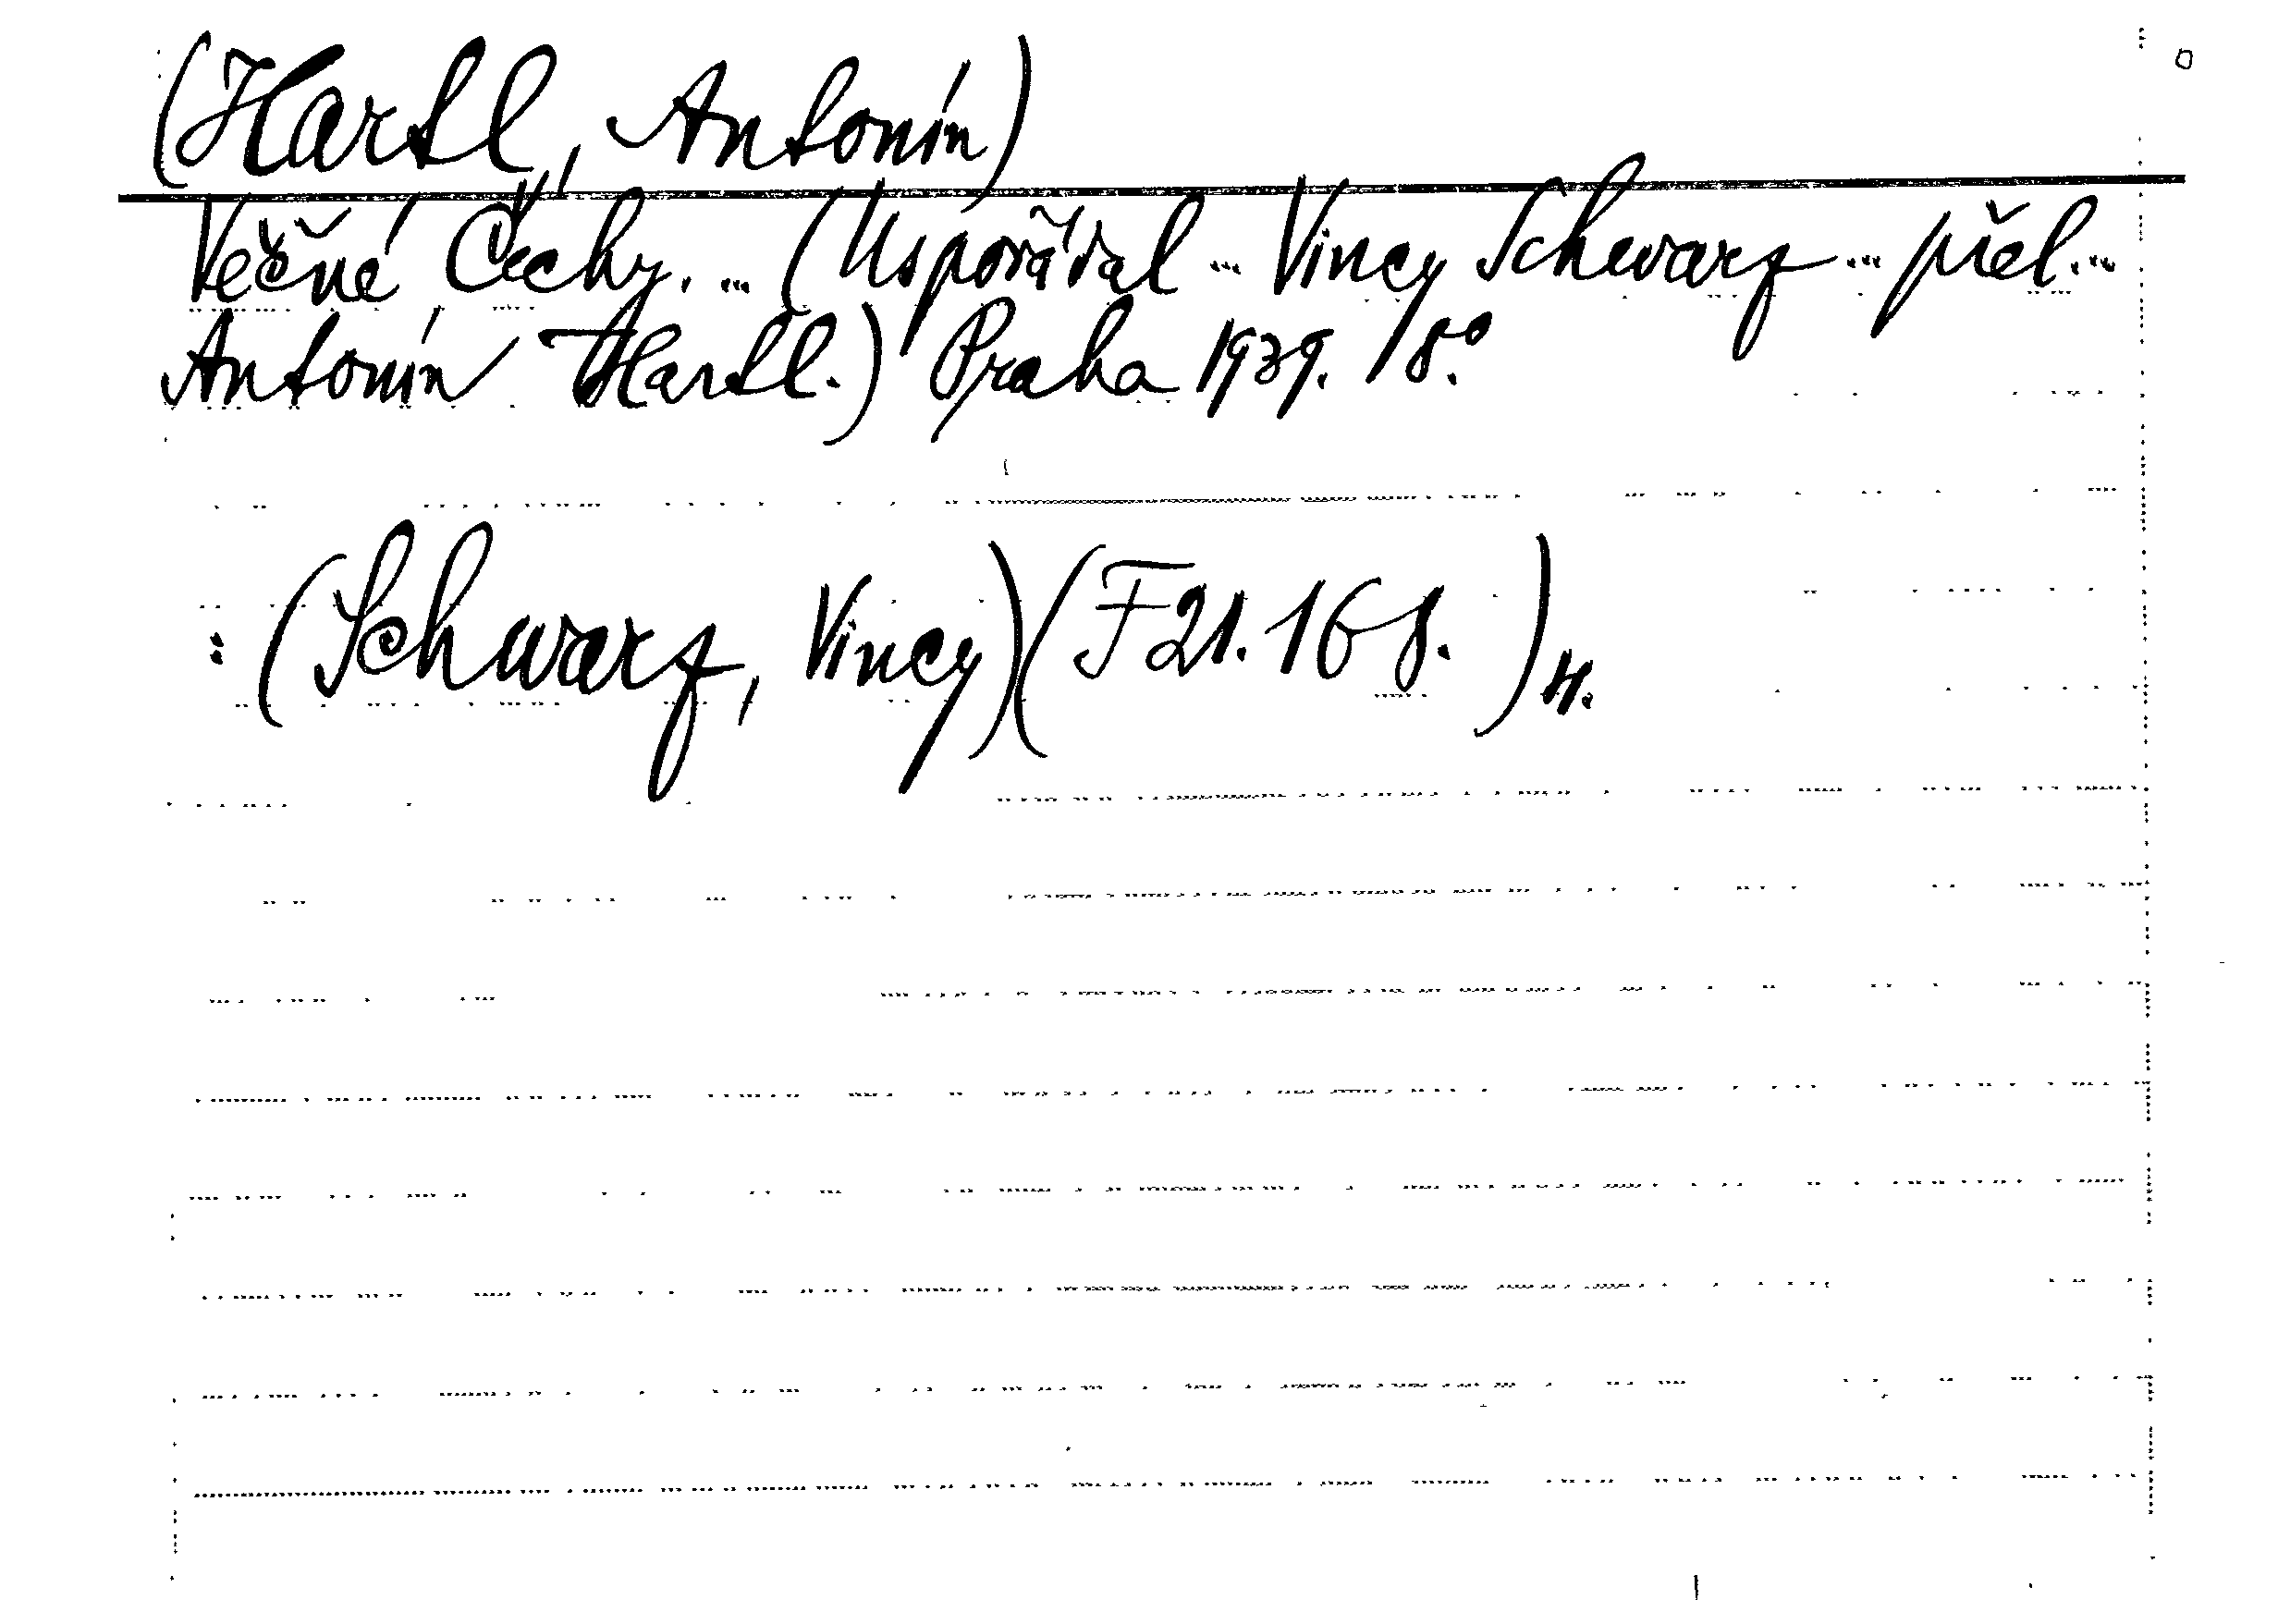 (Hartl, Antonín)
Věčné Čechy. ... (Uspořádal ... Vincy Schwarz ... přel. ...
Antonín Hartl.) Praha 1939. 8.°
: (Schwarz, Vincy) (F 21. 168. ) H.